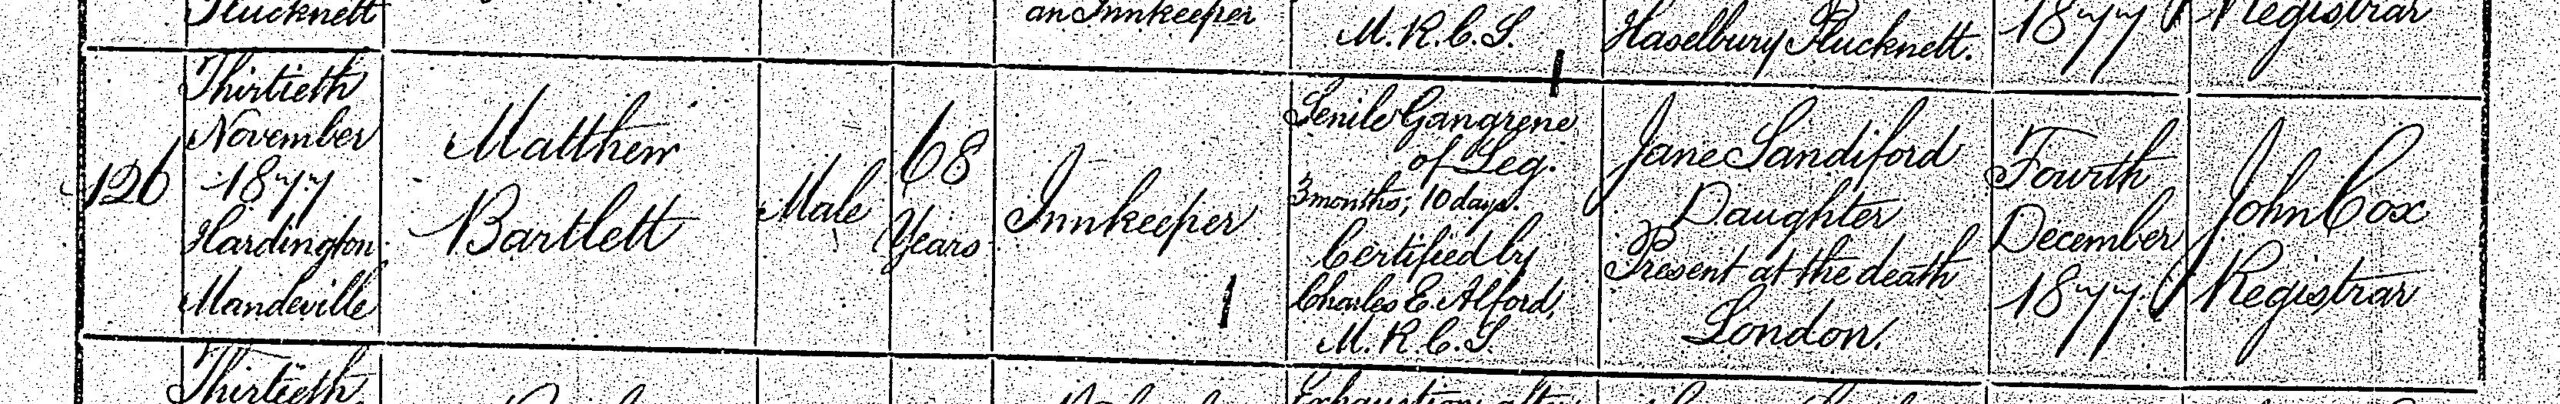 Plucknett
an Innkeeper
M.R.C.S.
Haselbury Plucknett.
1877
Registrar
126
Thirtieth
November
1877
Hardington
Mandeville
Matthew
Bartlett
Male
68
Years
Innkeeper
Senile Gangrene
of Leg.
3 months; 10 days.
Certified by
Charles E. Alford,
M.R.C.S.
Jane Sandiford
Daughter
Present at the death
London.
Fourth
December
1877.
John Cox
Registrar
Thirtieth
Exhaustion after